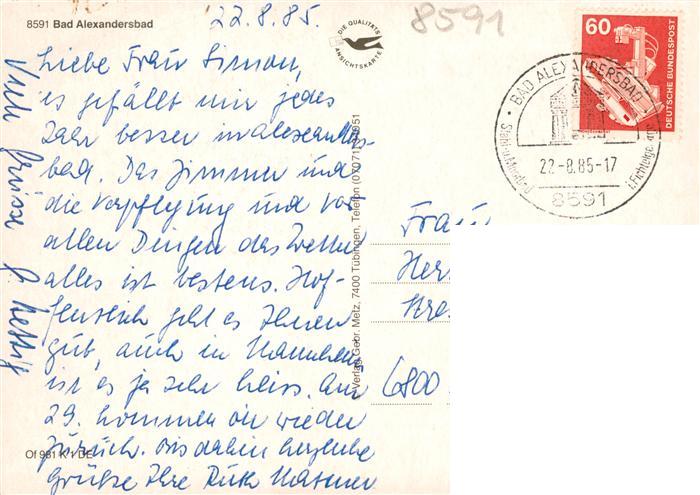 8591 Bad Alexandersbad
22.8.85.
8591
Liebe Frau Simon,
es gefällt mir jedes
Jahr besser in Alexanders-
bad. Das Zimmer und
die Verpflegung und vor
allen Dingen das Wetter
alles ist bestens. Hof-
fentlich geht es Ihnen
gut, auch in Mannheim
ist es ja sehr heiss. Am
29. kommen wir wieder
zurück. Bis dahin herzliche
Grüße Ihre Ruth
Viele Grüsse
DIE QUALITÄTS
ANSICHTSKARTE
Verlag Gebr. Metz, 7400 Tübingen, Telefon (07071)
Of 981 K 1 DE
60
DEUTSCHE BUNDESPOST
BAD ALEXANDERSBAD
22.-8.85-17
8591
Frau
Her
Stre
6800